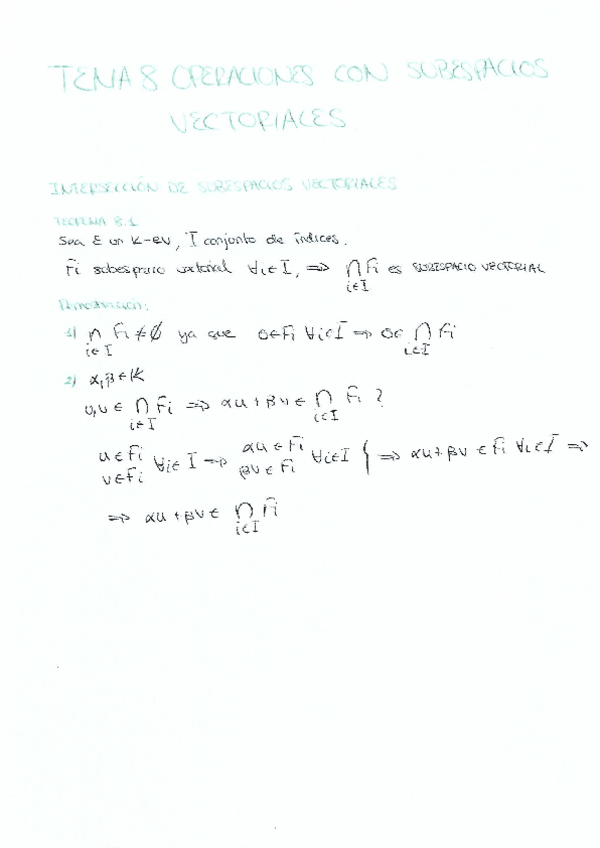 TEMA 8 OPERACIONES CON SUBESPACIOS
VECTORIALES
INTERSECCIÓN DE SUBESPACIOS VECTORIALES
TEOREMA 8.1
Sea E un K-ev, I conjunto de índices.
Fi subespacio vectorial ∀i∈I, ⇒ ∩ Fi es SUBESPACIO VECTORIAL
i∈I
Demostración:
1) ∩ Fi ≠ ∅ ya que 0∈Fi ∀i∈I ⇒ 0∈ ∩ Fi
i∈I i∈I
2) α,β∈K
u,v ∈ ∩ Fi ⇒ αu+βv ∈ ∩ Fi ?
i∈I i∈I
u∈Fi ∀i∈I ⇒ αu∈Fi ∀i∈I } ⇒ αu+βv ∈ Fi ∀i∈I ⇒
v∈Fi βv∈Fi
⇒ αu+βv ∈ ∩ Fi
i∈I